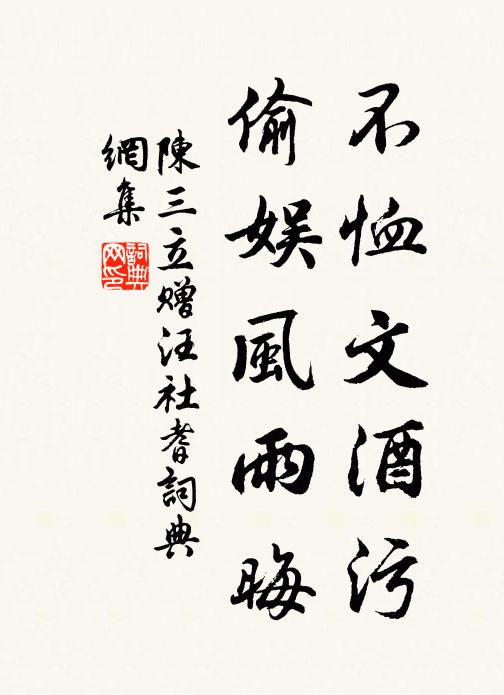 不恤文酒污
偷娱風雨晦
陳三立贈汪社耆詞典
網集
詞典網印